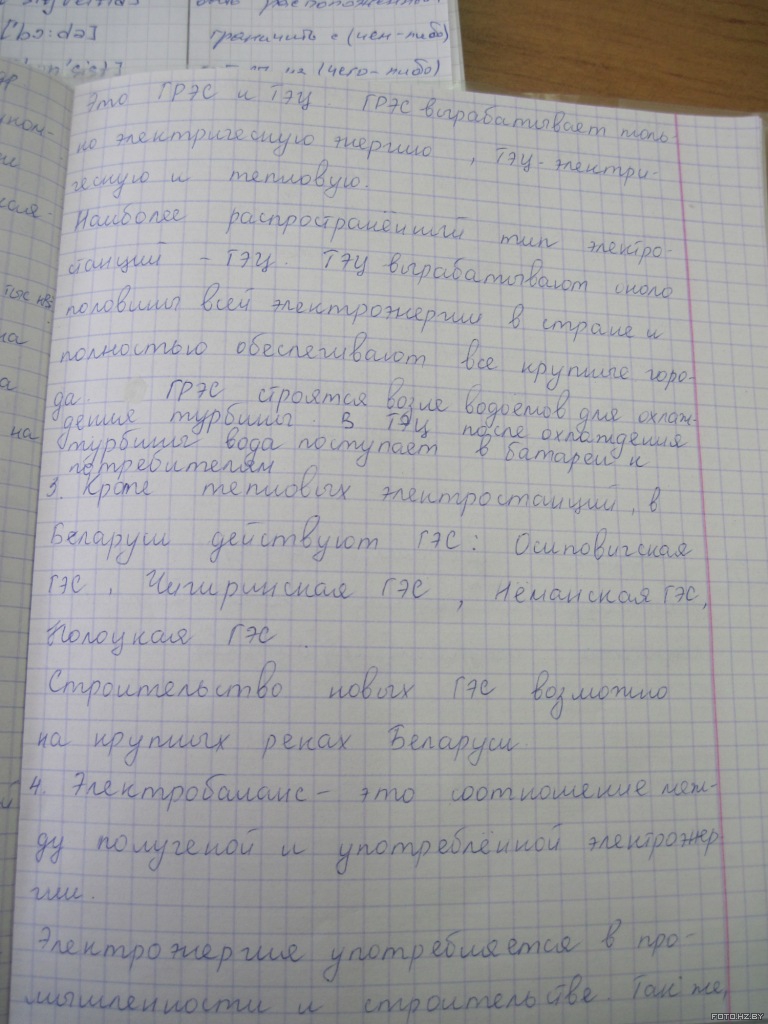 ['bɔ:də]
граничить с (чем-либо)
на (чего-либо)
Это ГРЭС и ТЭЦ. ГРЭС вырабатывает толь-
ко электрическую энергию, ТЭЦ - электри-
ческую и тепловую.
Наиболее распространённый тип электро-
станций - ТЭЦ. ТЭЦ вырабатывают около
половины всей электроэнергии в стране и
полностью обеспечивают все крупные горо-
да. ГРЭС строятся возле водоёмов для охлаж-
дения турбины. В ТЭЦ после охлаждения
турбины вода поступает в батареи к
потребителям
3. Кроме тепловых электростанций, в
Беларуси действуют ГЭС: Осиповичская
ГЭС, Чигиринская ГЭС, Нёманская ГЭС,
Полоцкая ГЭС.
Строительство новых ГЭС возможно
на крупных реках Беларуси.
4. Электробаланс - это соотношение меж-
ду полученой и употреблённой электроэнер-
гии.
Электроэнергия употребляется в про-
мышленности и строительстве. Так же,
FOTO.HZ.BY